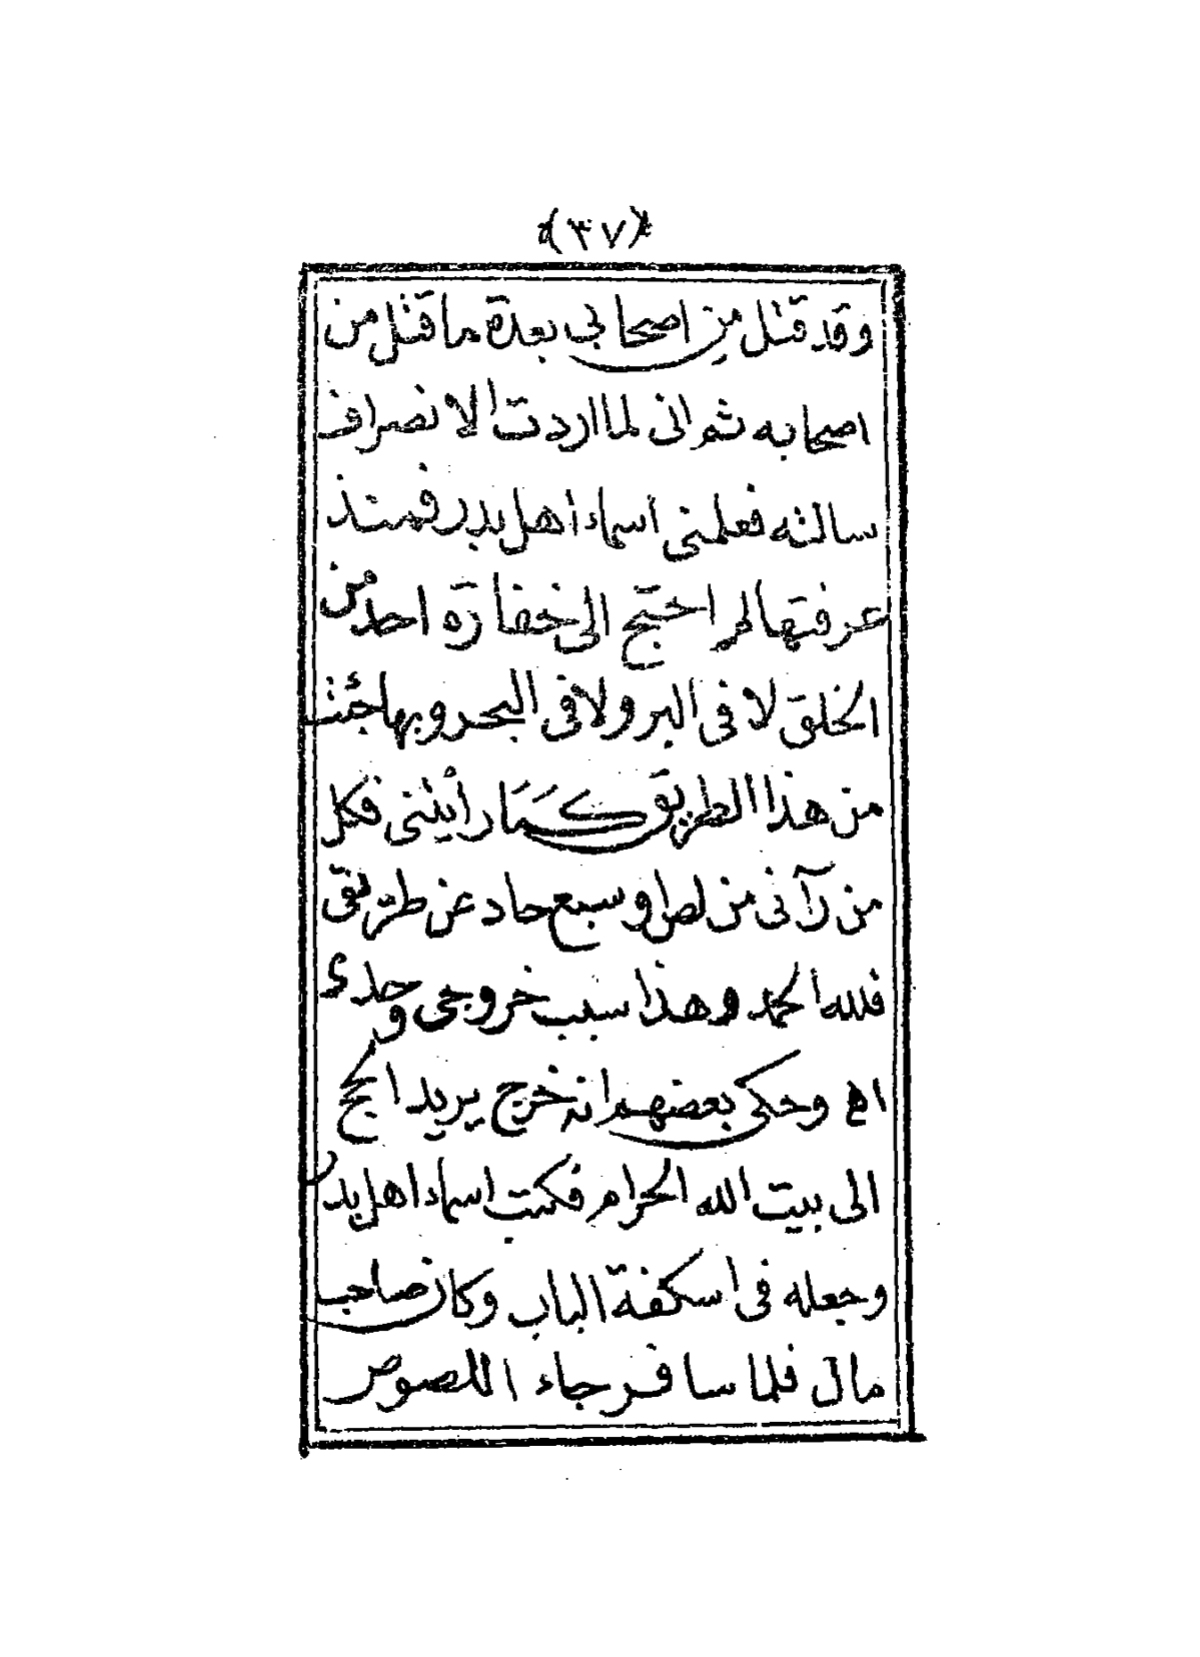 (٣٧)
وقد قتل من اصحابي بعدة ما قتل من
اصحابه ثم انى لما اردت الانصراف
سالته فعلمنى اسماء اهل بدر فمنذ
عرفتها لم احتج الى خفارة احد من
الخلق لا فى البر ولا فى البحر وبها جئت
من هذا الطريق كَمَا رأيتنى فكل
من رآنى من لص او سبع حاد عن طريقى
فلله الحمد وهذا سبب خروجى وحدى
اه وحكى بعضهم انه خرج يريد الحج
الى بيت الله الحرام فكتب اسماء اهل بدر
وجعله فى اسكفة الباب وكان صاحب
مال فلما سافر جاء اللصوص